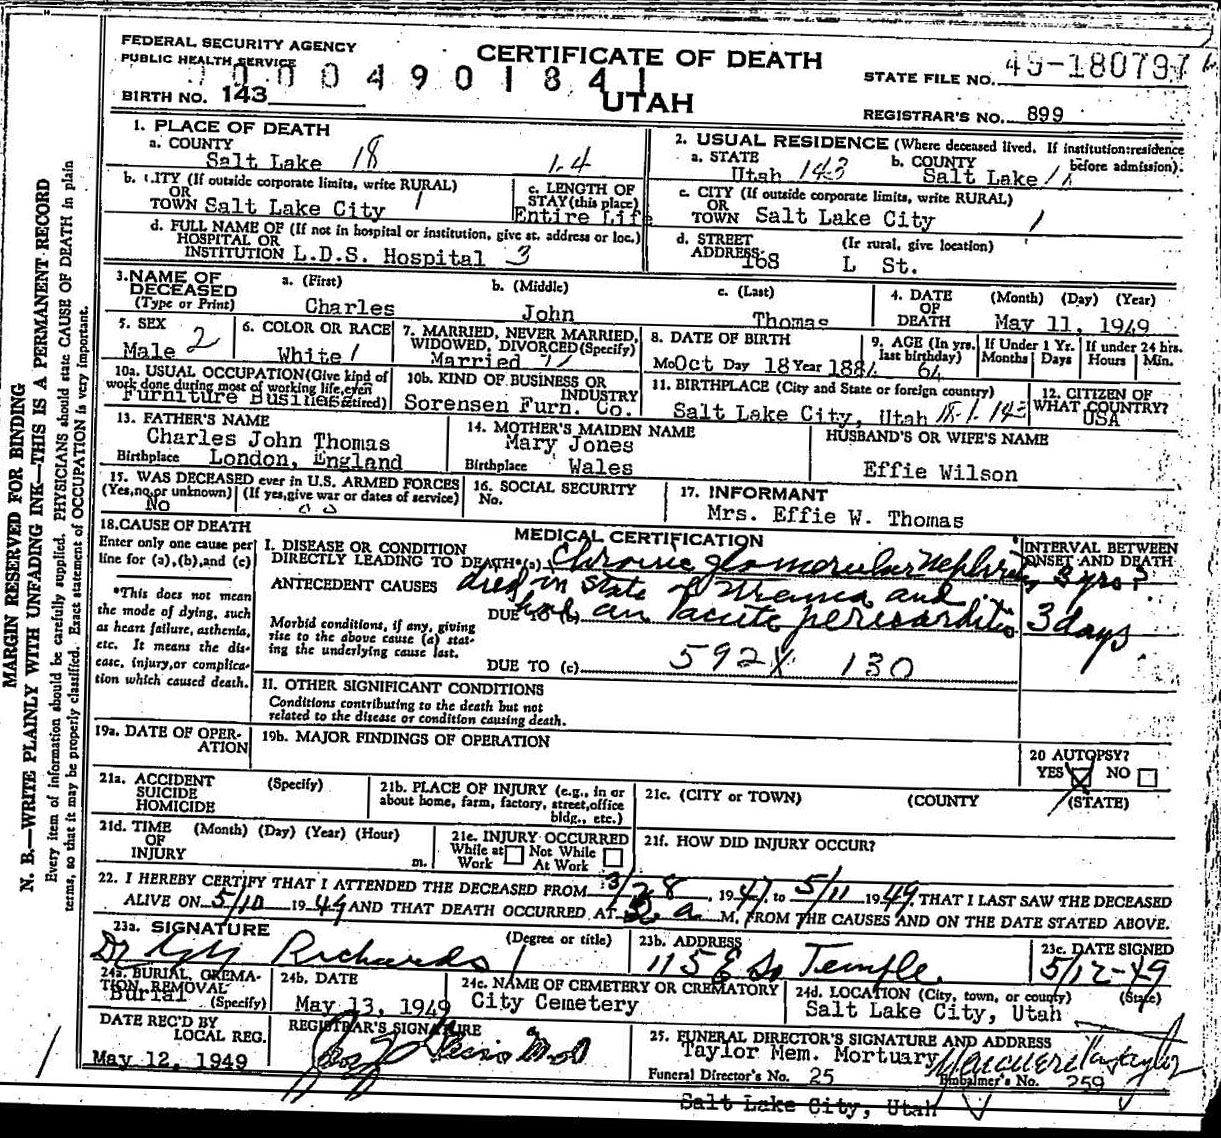 FEDERAL SECURITY AGENCY
PUBLIC HEALTH SERVICE
CERTIFICATE OF DEATH
STATE FILE NO. 49-180797
0 0 0 4 9 0 1 8 4 1
BIRTH NO. 143
UTAH
REGISTRAR'S NO. 899
1. PLACE OF DEATH
a. COUNTY
Salt Lake 18
2. USUAL RESIDENCE (Where deceased lived. If institution:residence before admission).
a. STATE Utah 143 b. COUNTY Salt Lake
b. CITY (If outside corporate limits, write RURAL)
OR
TOWN Salt Lake City 1
c. LENGTH OF
STAY (this place)
Entire Life
c. CITY (If outside corporate limits, write RURAL)
OR
TOWN Salt Lake City 1
d. FULL NAME OF (If not in hospital or institution, give st. address or loc.)
HOSPITAL OR
INSTITUTION L.D.S. Hospital 3
d. STREET ADDRESS (If rural, give location)
168 L St.
3. NAME OF DECEASED
(Type or Print)
a. (First) Charles
b. (Middle) John
c. (Last) Thomas
4. DATE OF DEATH (Month) (Day) (Year)
May 11, 1949
5. SEX
Male 2
6. COLOR OR RACE
White 1
7. MARRIED, NEVER MARRIED,
WIDOWED, DIVORCED (Specify)
Married
8. DATE OF BIRTH
Mo Oct Day 18 Year 1884
9. AGE (In yrs. last birthday)
64
If Under 1 Yr. Months Days
If under 24 hrs. Hours Min.
10a. USUAL OCCUPATION (Give kind of
work done during most of working life, even
if retired)
Furniture Business
10b. KIND OF BUSINESS OR
INDUSTRY
Sorensen Furn. Co.
11. BIRTHPLACE (City and State or foreign country)
Salt Lake City, Utah
12. CITIZEN OF
WHAT COUNTRY?
USA
13. FATHER'S NAME
Charles John Thomas
Birthplace London, England
14. MOTHER'S MAIDEN NAME
Mary Jones
Birthplace Wales
HUSBAND'S OR WIFE'S NAME
Effie Wilson
15. WAS DECEASED ever in U.S. ARMED FORCES
(Yes, no, or unknown) (If yes, give war or dates of service)
No
16. SOCIAL SECURITY
No.
17. INFORMANT
Mrs. Effie W. Thomas
18. CAUSE OF DEATH
Enter only one cause per
line for (a), (b), and (c)
*This does not mean
the mode of dying, such
as heart failure, asthenia,
etc. It means the dis-
ease, injury, or complica-
tion which caused death.
MEDICAL CERTIFICATION
I. DISEASE OR CONDITION
DIRECTLY LEADING TO DEATH*(a) Chronic glomerular Nephritis
ANTECEDENT CAUSES died in state of Uremia and
DUE TO (b) had an acute pericarditis
Morbid conditions, if any, giving
rise to the above cause (a) stat-
ing the underlying cause last.
DUE TO (c) 592X 130
INTERVAL BETWEEN
ONSET AND DEATH
3 yrs?
3 days
II. OTHER SIGNIFICANT CONDITIONS
Conditions contributing to the death but not
related to the disease or condition causing death.
19a. DATE OF OPER-
ATION
19b. MAJOR FINDINGS OF OPERATION
20 AUTOPSY?
YES NO
21a. ACCIDENT (Specify)
SUICIDE
HOMICIDE
21b. PLACE OF INJURY (e.g., in or
about home, farm, factory, street, office
bldg., etc.)
21c. (CITY or TOWN) (COUNTY (STATE)
21d. TIME (Month) (Day) (Year) (Hour)
OF
INJURY m.
21e. INJURY OCCURRED
While at Work Not While At Work
21f. HOW DID INJURY OCCUR?
22. I HEREBY CERTIFY THAT I ATTENDED THE DECEASED FROM 3/28, 1947, to 5/11 1949, THAT I LAST SAW THE DECEASED
ALIVE ON 5/10 1949 AND THAT DEATH OCCURRED AT a M, FROM THE CAUSES AND ON THE DATE STATED ABOVE.
23a. SIGNATURE (Degree or title)
Dr Richards
23b. ADDRESS
115 E So Temple
23c. DATE SIGNED
5/12-49
24a. BURIAL, CREMA-
TION, REMOVAL
Burial (Specify)
24b. DATE
May 13, 1949
24c. NAME OF CEMETERY OR CREMATORY
City Cemetery
24d. LOCATION (City, town, or county) (State)
Salt Lake City, Utah
DATE REC'D BY
LOCAL REG.
May 12, 1949
REGISTRAR'S SIGNATURE
25. FUNERAL DIRECTOR'S SIGNATURE AND ADDRESS
Taylor Mem. Mortuary
Funeral Director's No. 25 Embalmer's No. 259
Salt Lake City, Utah
MARGIN RESERVED FOR BINDING
N. B.—WRITE PLAINLY WITH UNFADING INK—THIS IS A PERMANENT RECORD
Every item of information should be carefully supplied. PHYSICIANS should state CAUSE OF DEATH in plain
terms, so that it may be properly classified. Exact statement of OCCUPATION is very important.